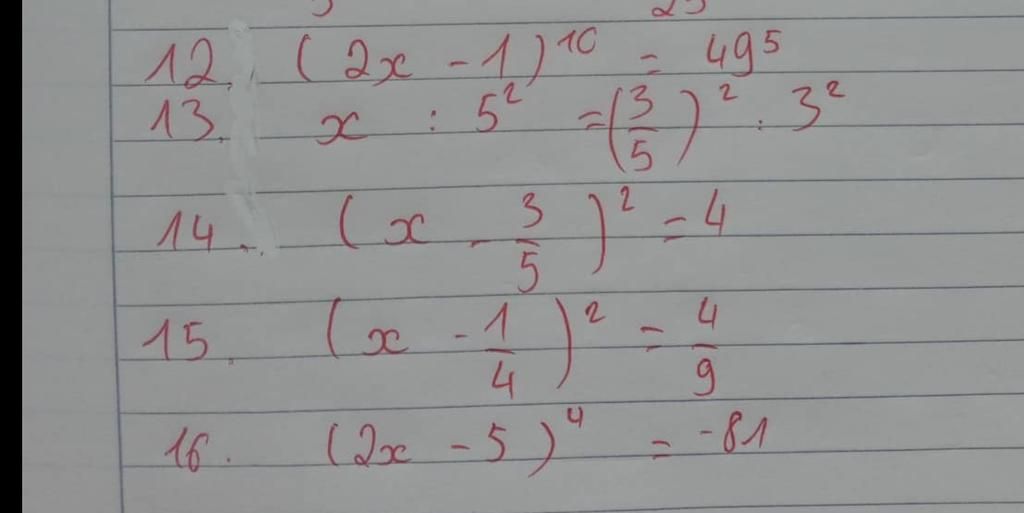 12. (2x - 1)^10 = 49^5
13. x : 5^2 = (3/5)^2 : 3^2
14. (x - 3/5)^2 = 4
15. (x - 1/4)^2 = 4/9
16. (2x - 5)^4 = -81